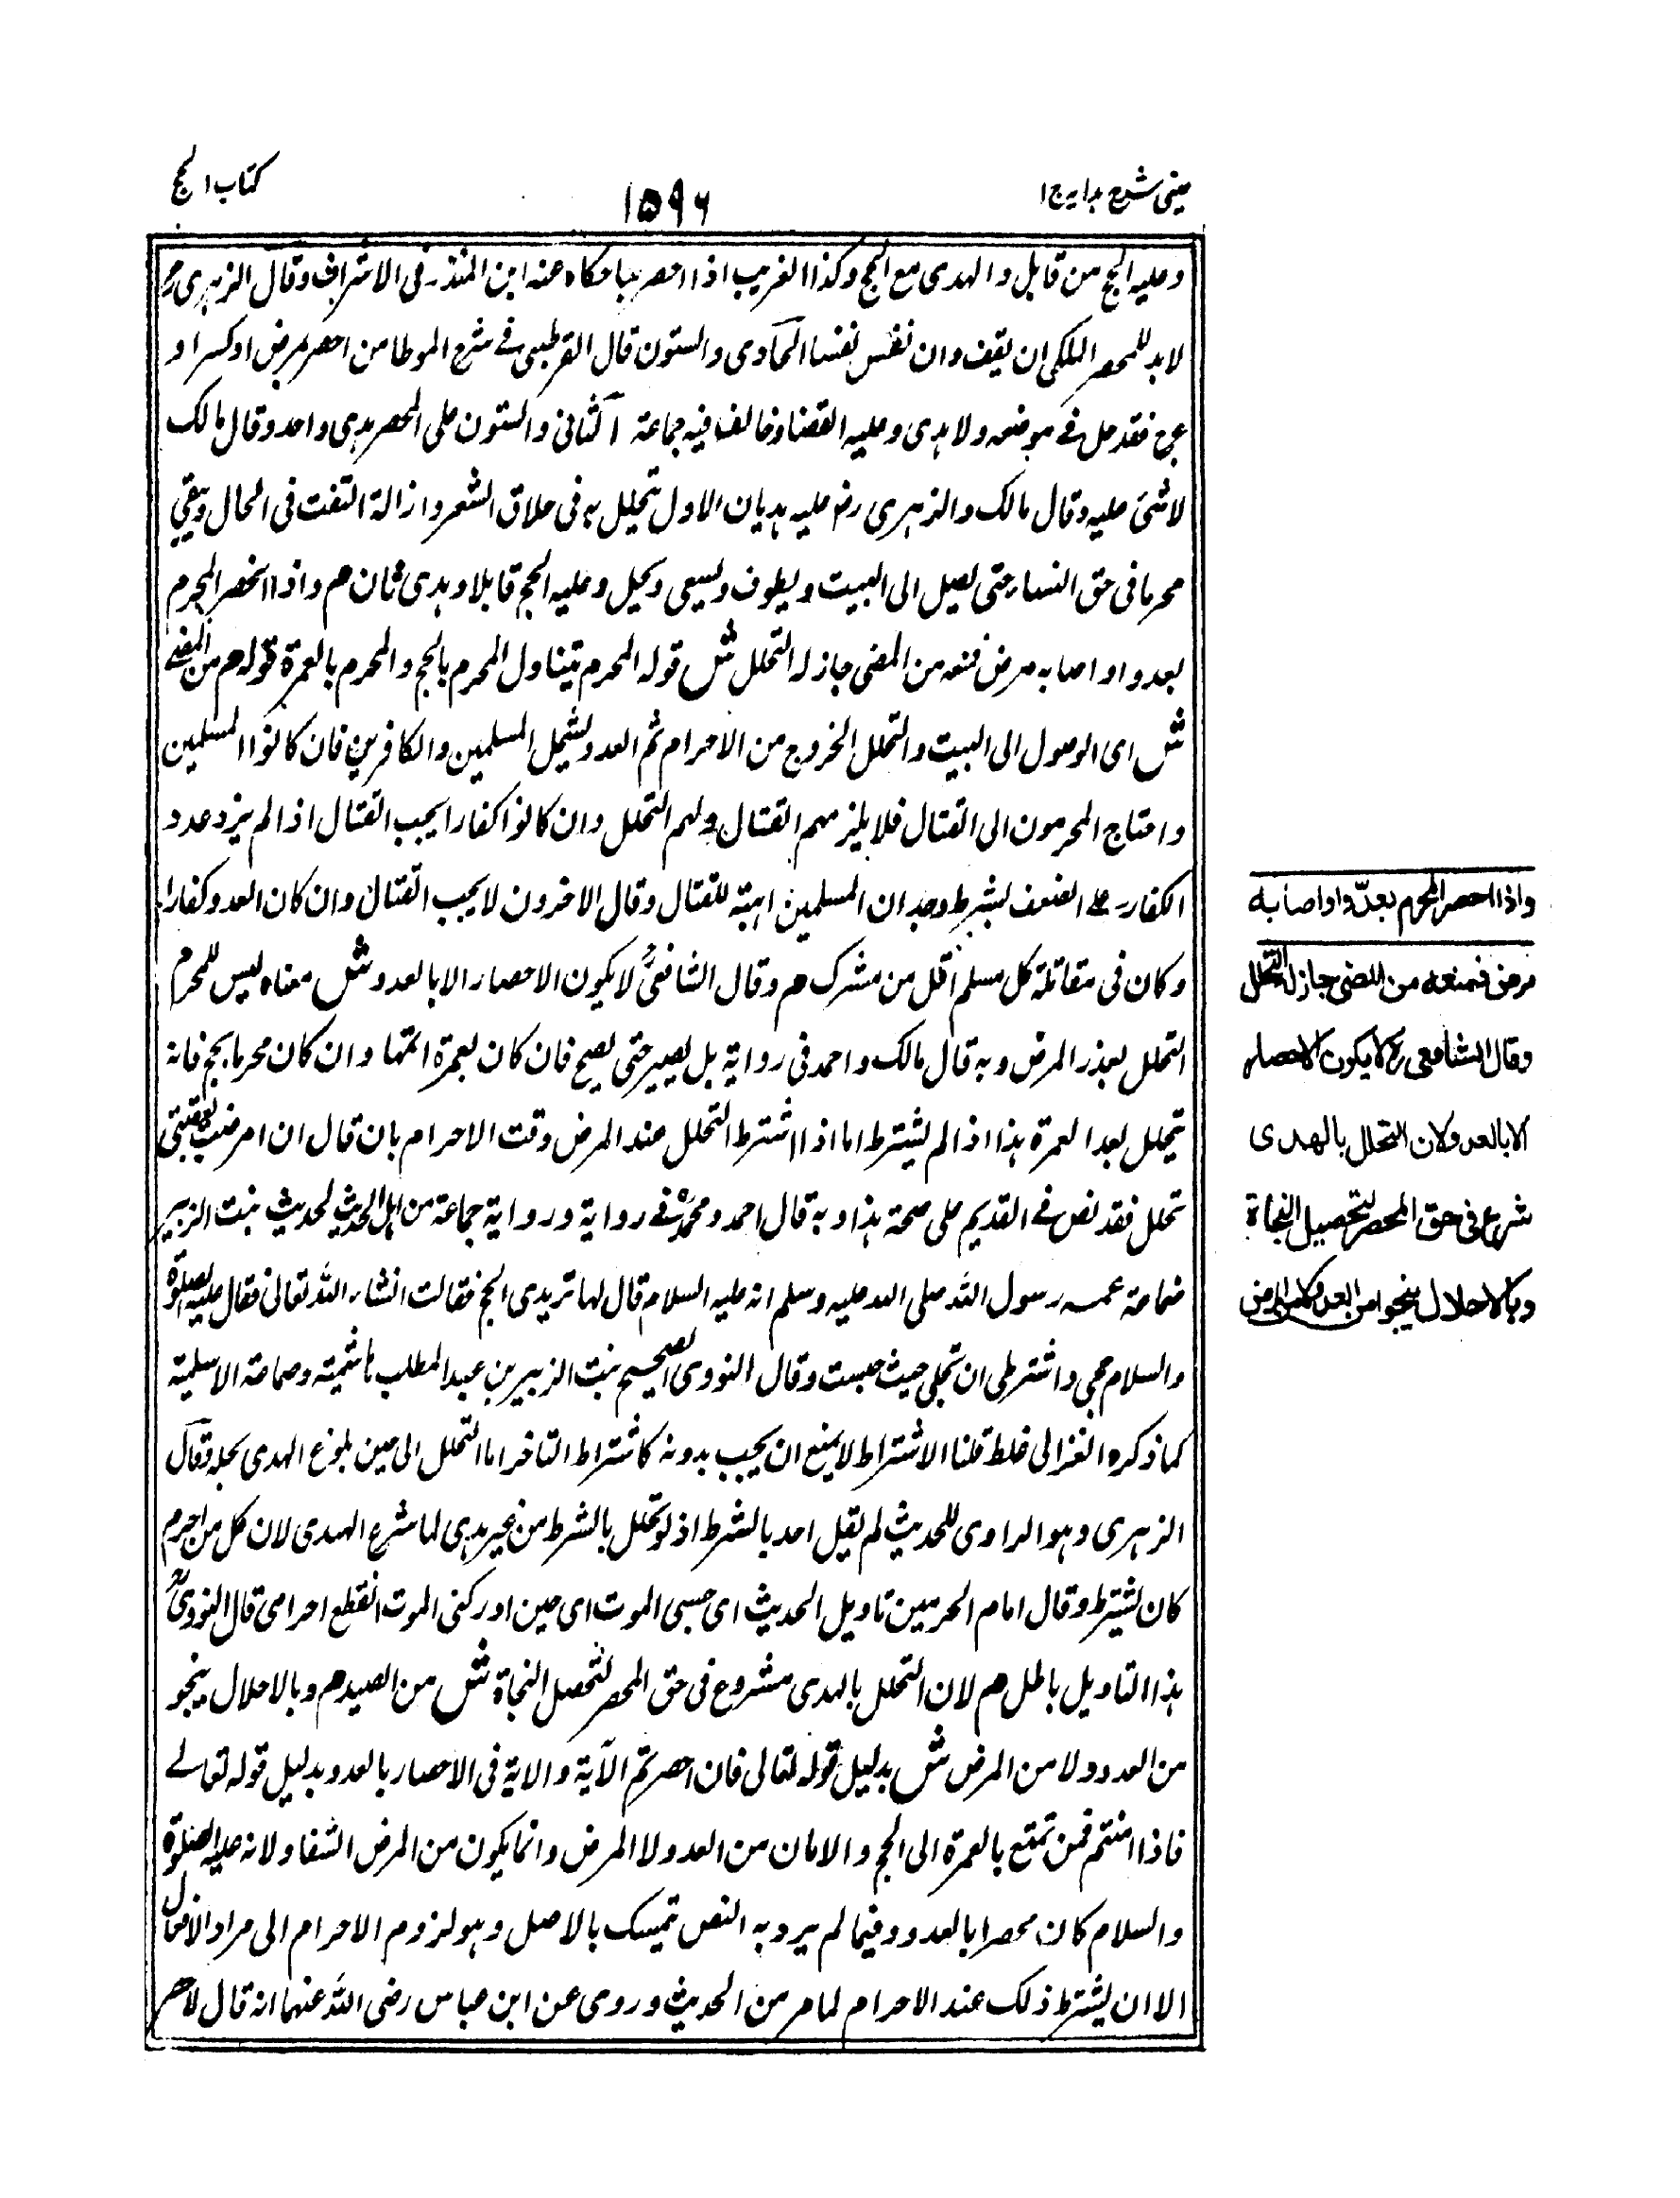 عينى شرح هدايه ج ا
١٥٩٦
كتاب الحج
وعليه الحج من قابل والهدى مع الحج وكذا الغريب اذا احصر بها حكاه عنه ابن المنذر فى الاشراف وقال الزهرى رح
لابد للمحصر المكى ان يقف وان نعش نعشا الحآدى والستون قال القرطبى فى شرح الموطا من احصر بمرض او كسر او
عرج فقد حل فى موضعه ولا هدى وعليه القضا وخالف فيه جماعة الثانى والستون على المحصر هدى واحد وقال مالك
لاشئ عليه وقال مالك والزهرى رض عليه هديان الاول يتحلل به فى حلاق الشعر وازالة التفث فى الحال ويبقى
محرما فى حق النساء حتى يصل الى البيت ويطوف ويسعى ويحل وعليه الحج قابلا وهدى ثان هم واذا احصر المحرم
بعدو او اصابه مرض فمنعه من المضى جاز له التحلل ش قوله المحرم يتناول المحرم بالحج والمحرم بالعمرة قوله هم من المضى
ش اى الوصول الى البيت والتحلل الخروج من الاحرام ثم العدو يشمل المسلمين والكافرين فان كانوا المسلمين
واحتاج المحرمون الى القتال فلا يلزمهم القتال ولهم التحلل وان كانوا كفارا يجب القتال اذا لم يزد عدد
الكفار على الضعف بشرط وجدان المسلمين اهبة للقتال وقال الاخرون لا يجب القتال وان كان العدو كفارا
وكان فى مقاتلة كل مسلم اقل من مشرك هم وقال الشافعىؒ لا يكون الاحصار الا بالعدو ش معناه ليس للمحرم
التحلل بعذر المرض وبه قال مالك واحمد فى رواية بل يصبر حتى يصح فان كان بعمرة اتمها وان كان محرما بحج فانه
يتحلل بعد العمرة هذا اذا لم يشترط اما اذا اشترط التحلل عند المرض وقت الاحرام بان قال ان امرضت
تحلل فقد نص فى القديم على صحة هذا وبه قال احمد ومحمدؒ فى رواية ورواية جماعة من اهل الحديث لحديث بنت الزبير
ضباعة عمه رسول الله صلى الله عليه وسلم انه عليه السلام قال لها تريدى الحج فقالت انشاء الله تعالى فقال عليه الصلوة
والسلام حجى واشترطى ان تحلى حيث حبست وقال النووى الصحيح بنت الزبير بن عبد المطلب هاشمية وضباعة الاسلمية
كما ذكره الغزالى غلط قلنا الاشتراط لا يمنع ان يجب بدونه كاشتراط التاخر اما التحلل الى حين بلوغ الهدى محله وقال
الزهرى وهو الراوى للحديث لم يقل احد بالشرط اذ لو تحلل بالشرط من غير هدى لما شرع الهدى لان كل من احرم
كان يشترط وقال امام الحرمين تاويل الحديث اى حبسى الموت اى حين ادركنى الموت انقطع احرامى قال النووىؒ
هذا التاويل باطل هم لان التحلل بالهدى مشروع فى حق المحصر لتحصل النجاة ش من الصيد هم وبالاحلال ينجو
من العدو ولا من المرض ش بدليل قوله تعالى فان احصرتم الآية والاية فى الاحصار بالعدو بدليل قوله تعالى
فاذا امنتم فمن تمتع بالعمرة الى الحج والامان من العدو لا المرض وانما يكون من المرض الشفا ولانه عليه الصلوة
والسلام كان محصرا بالعدو وفيما لم يرد به النص تمسك بالاصل وهو لزوم الاحرام الى مراد الافعال
الا ان يشترط ذلك عند الاحرام لما مر من الحديث وروى عن ابن عباس رضى الله عنهما انه قال لا حصر
واذا احصر المحرم بعدو او اصابه
مرض فمنعه من المضى جاز له التحلل
وقال الشافعى رح لا يكون الاحصار
الا بالعدو لان التحلل بالهدى
شرع فى حق المحصر لتحصيل النجاة
وبالاحلال ينجو من العدو لا من المرض